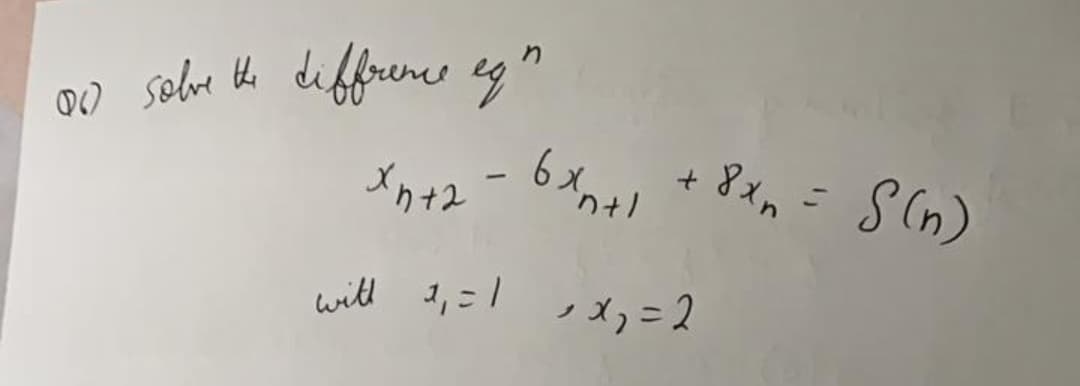 Q6) solve the difference eqⁿ
xₙ₊₂ - 6xₙ₊₁ + 8xₙ = S(n)
with x₁ = 1 , x₂ = 2